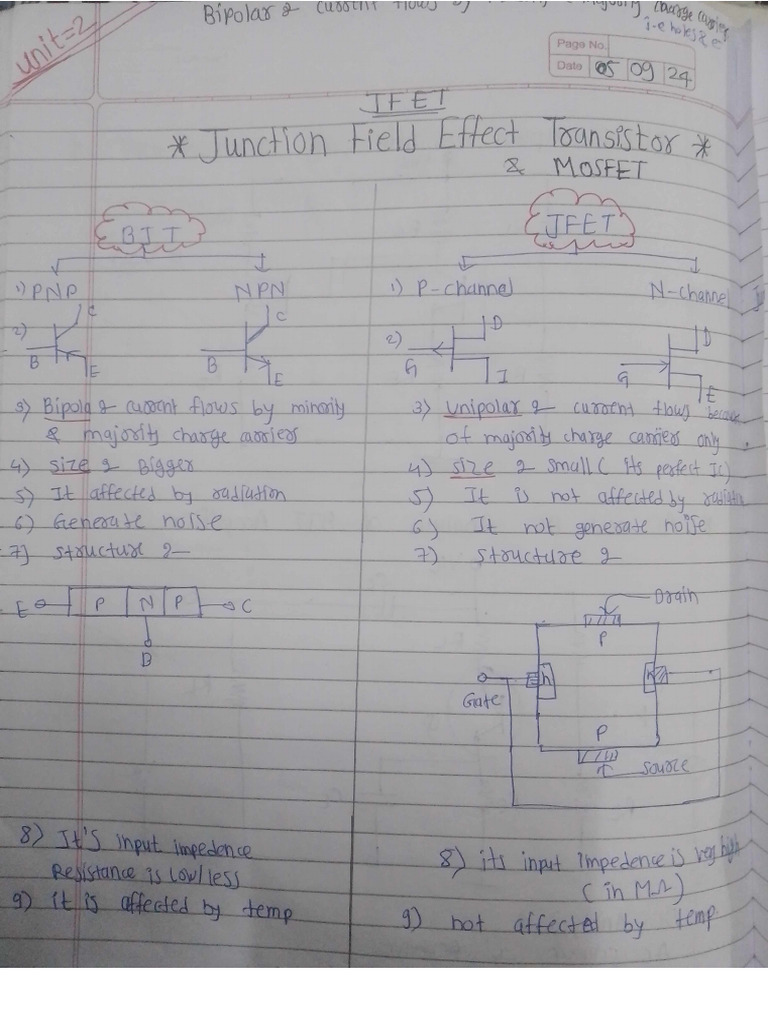 unit=2
Bipolar & current flows by charge carries
i-e holes & e
Page No.
Date 05 09 24
JFET
* Junction Field Effect Transistor *
& MOSFET
BJT
JFET
1) PNP NPN
1) P-channel N-channel
2) C B E B C E
2) G D I G D E
3) Bipolar & current flows by minority
& majority charge carriers
3) Unipolar & current flows because
of majority charge carriers only
4) size & Bigger
4) size & small ( its perfect IC)
5) It affected by radiation
5) It is not affected by radiation
6) Generate noise
6) It not generate noise
7) structure &—
7) structure &
E P N P C
B
Drain
P
Gate n n
P
source
8) It's input impedence
Resistance is low/less
8) its input impedence is very high
(in MΩ)
9) it is affected by temp
9) not affected by temp.